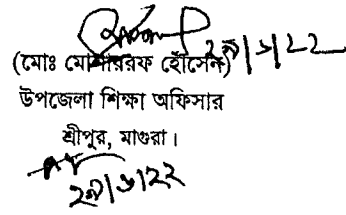 ২৯/৬/২২
(মোঃ মোশাররফ হোসেন)
উপজেলা শিক্ষা অফিসার
শ্রীপুর, মাগুরা।
২৯/৬/২২